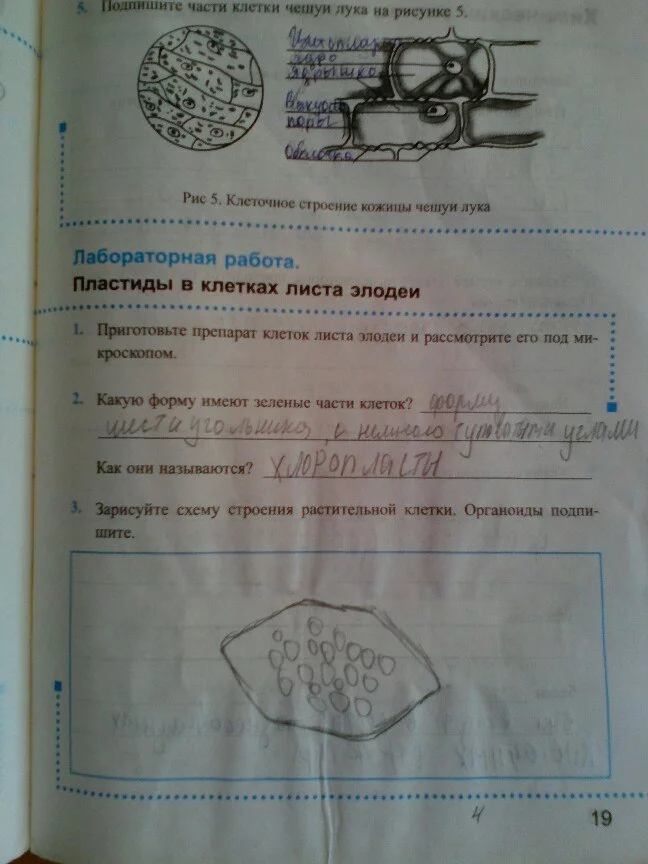 5. Подпишите части клетки чешуи лука на рисунке 5.
ядро
ядрышко
поры
Рис 5. Клеточное строение кожицы чешуи лука
Лабораторная работа.
Пластиды в клетках листа элодеи
1. Приготовьте препарат клеток листа элодеи и рассмотрите его под ми-
кроскопом.
2. Какую форму имеют зеленые части клеток? форму
шестиугольника, с немного углами
Как они называются? хлоропласты
3. Зарисуйте схему строения растительной клетки. Органоиды подпи-
шите.
4
19